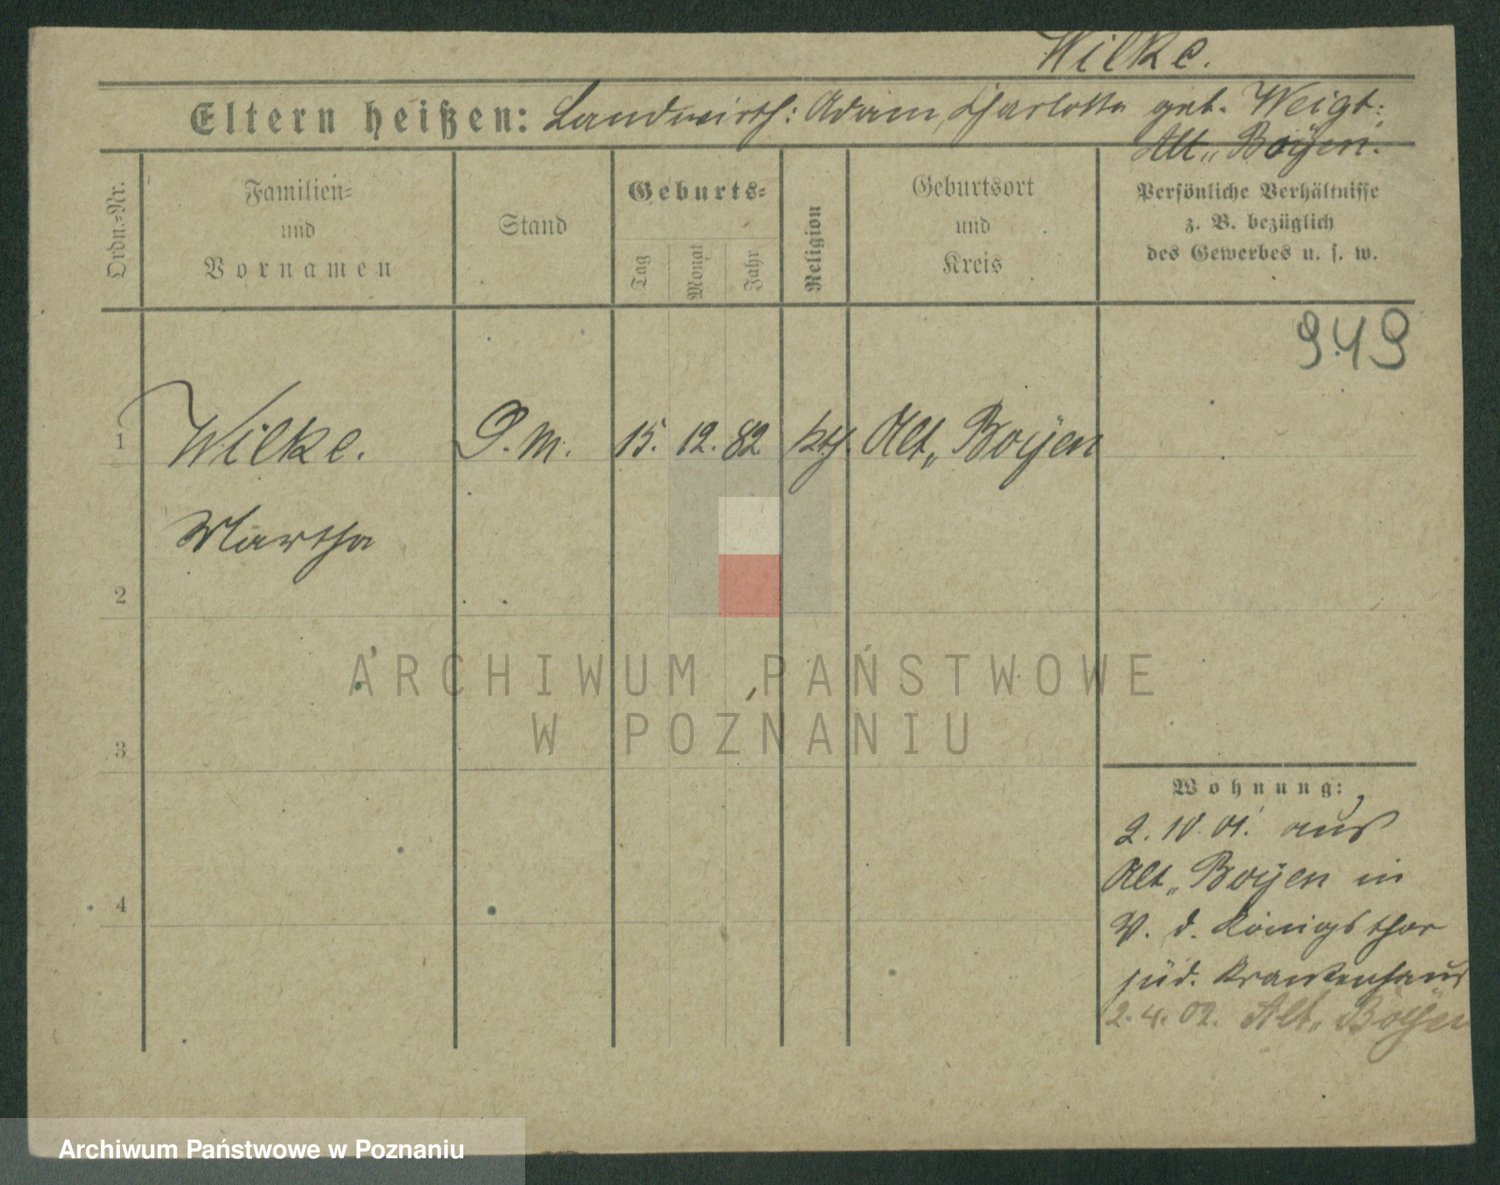 Wilke.
Eltern heißen: Landwirth: Adam, Charlotte geb. Weigt.
Alt„ Boyen.
Ordn.=Nr.
Familien=
und
Vornamen
Stand
Geburts=
Tag
Monat
Jahr
Religion
Geburtsort
und
Kreis
Persönliche Verhältnisse
z. B. bezüglich
des Gewerbes u. s. w.
949
1 Wilke. D. M. 15. 12. 82 Alt„ Boyen
Martha
2
ARCHIWUM PAŃSTWOWE
W POZNANIU
3
Wohnung:
2. 10. 01. aus
Alt„ Boyen in
V. d. Königsthor
jüd. Krankenhaus
2. 4. 02. Alt„ Boyen
4
Archiwum Państwowe w Poznaniu